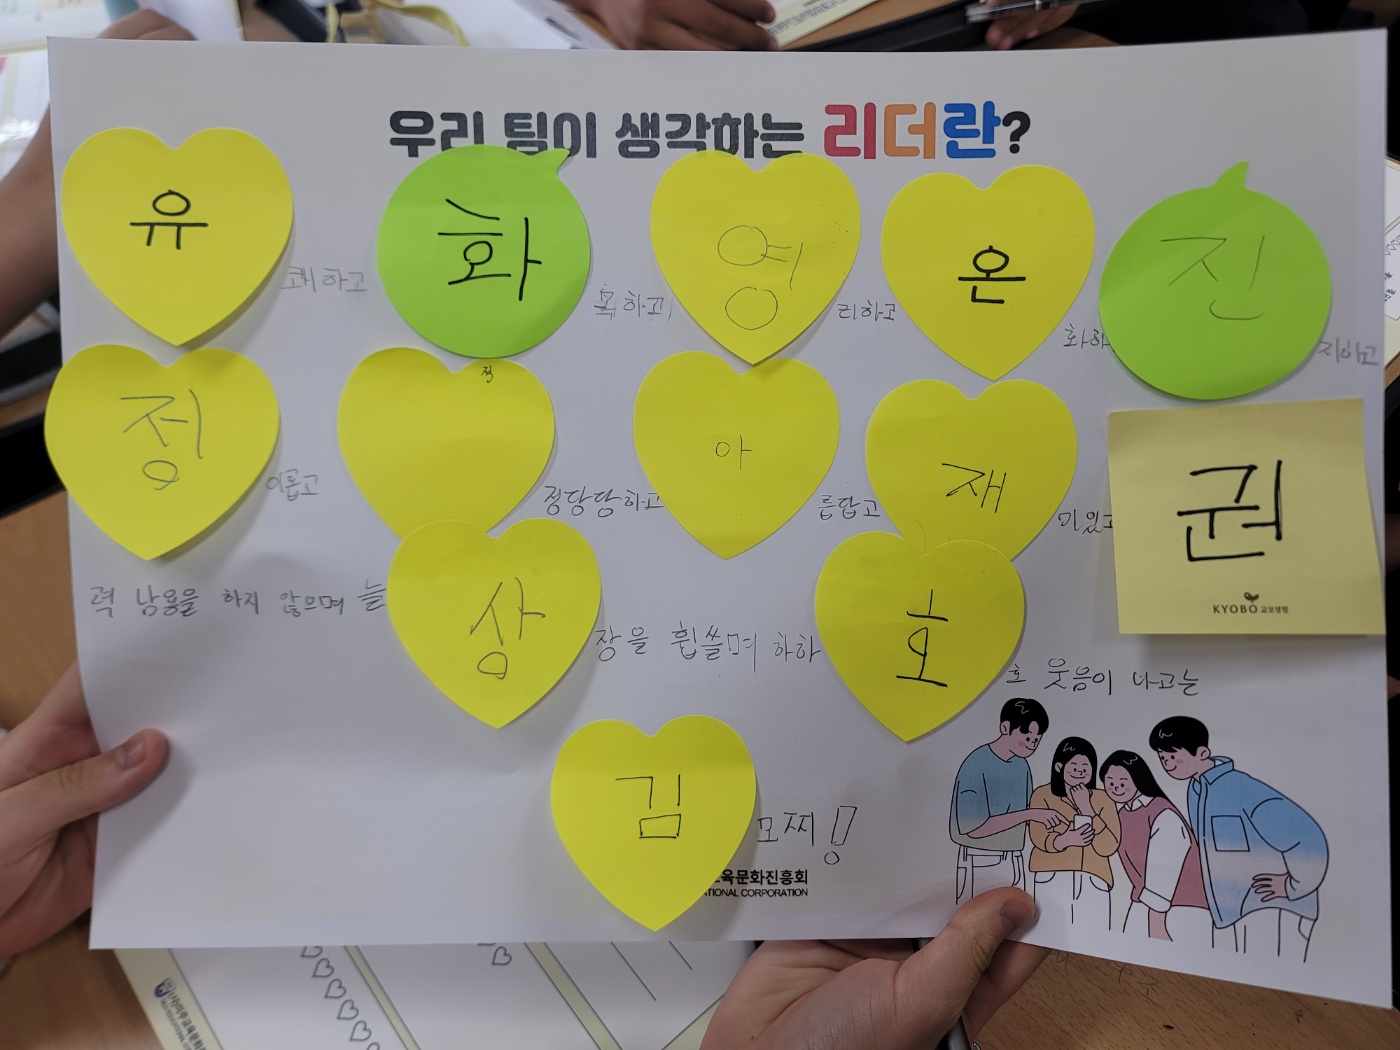 우리 팀이 생각하는 리더란?
유쾌하고 화목하고 영리하고 온화하 진지하고
정이롭고 정정당당하고 아름답고 재미있고 권
력 남용을 하지 않으며 늘 상장을 휩쓸며 하하 호호 웃음이 나고는
KYOBO 교보생명
김모찌!
육문화진흥회
ATIONAL CORPORATION